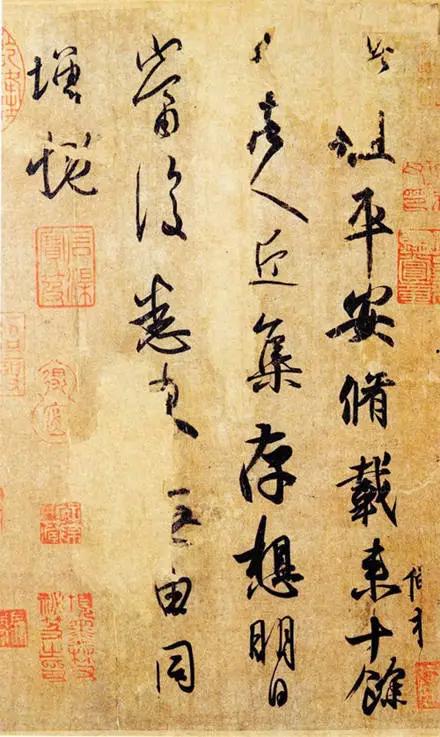 此粗平安脩載来十餘
日諸人近集存想明日
當復悉来无由同
增慨